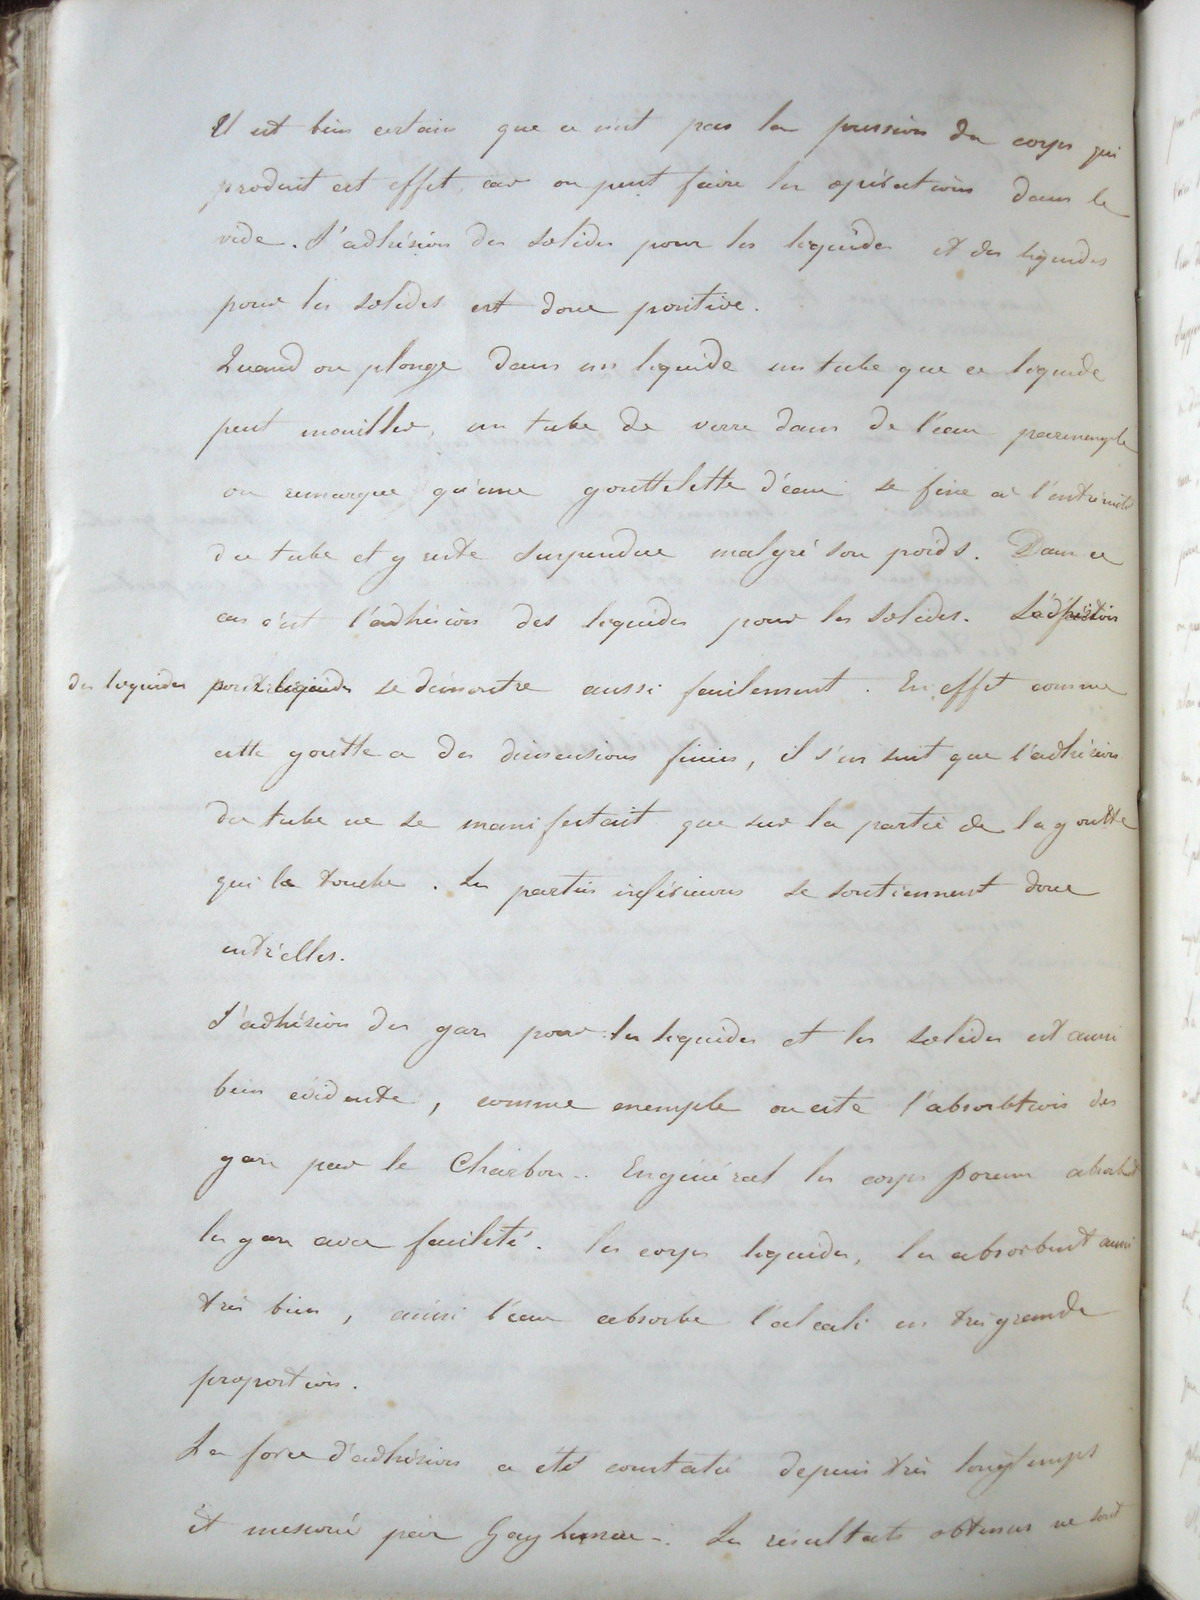 Il est bien certain que ce n'est pas la pression du corps qui
produit cet effet, car on peut faire les opérations dans le
vide. L'adhésion des solides pour les liquides et des liquides
pour les solides est donc positive.
Quand on plonge dans un liquide un tube que ce liquide
peut mouiller, un tube de verre dans de l'eau parexemple
on remarque qu'une gouttelette d'eau se fixe à l'extrémité
du tube et y reste suspendue malgré son poids. Dans ce
cas c'est l'adhésion des liquides pour les solides. L'adhésion
des liquides pour liquides se démontre aussi facilement. En effet comme
cette goutte a des dimensions finies, il s'en suit que l'adhésion
du tube ne se manifestait que sur la partie de la goutte
qui le touche. Les parties inférieures se soutiennent donc
entr'elles.
L'adhésion des gaz pour les liquides et les solides est aussi
bien évidente, comme exemple on cite l'absorbtion des
gaz par le Charbon.. En général les corps poreux absorbent
les gaz avec facilité. les corps liquides, les absorbent aussi
très bien, ainsi l'eau absorbe l'alcali en très grande
proportion.
La force d'adhésion a été constatée depuis très longtemps
et mesurée par Gay Lussac. Les résultats obtenus ne sont